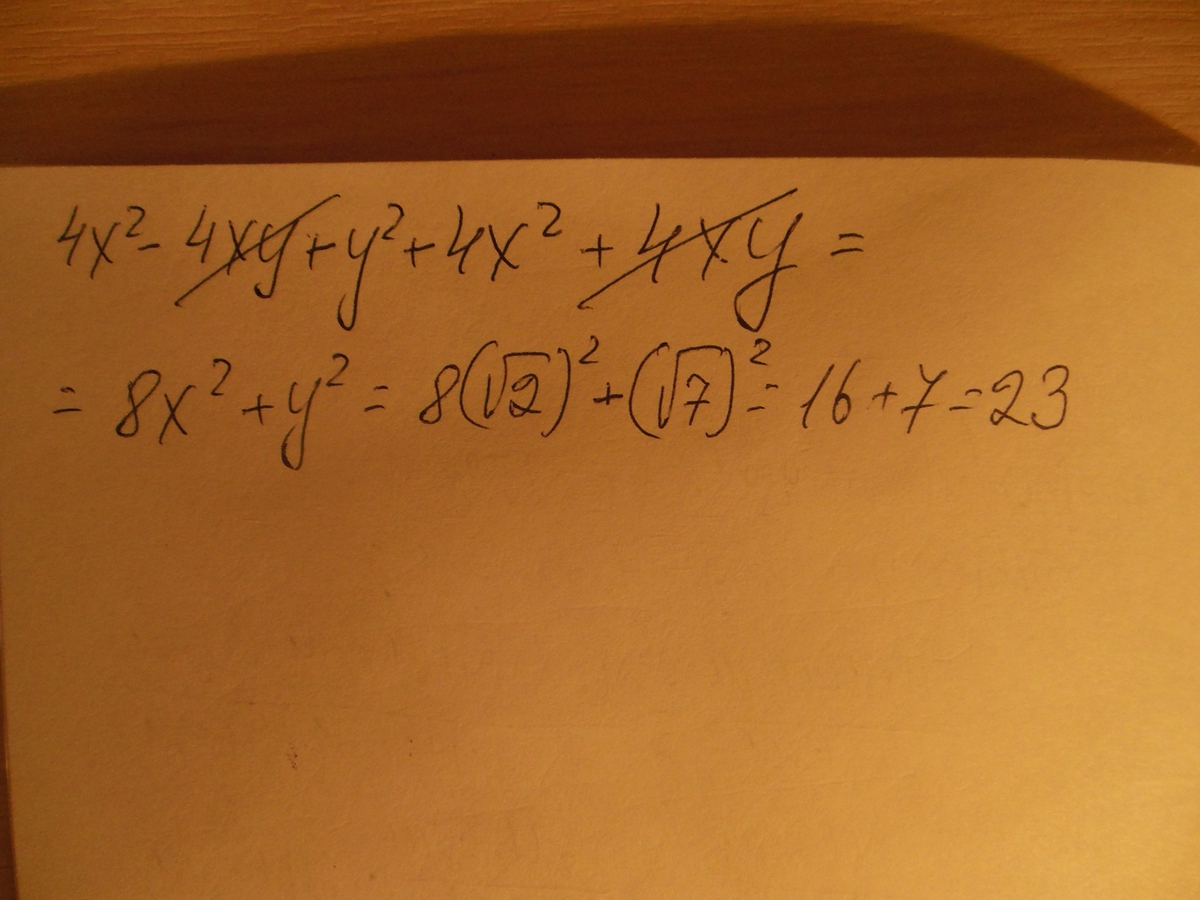 4x² - 4xy + y² + 4x² + 4xy =
= 8x² + y² = 8(√2)² + (√7)² = 16 + 7 = 23